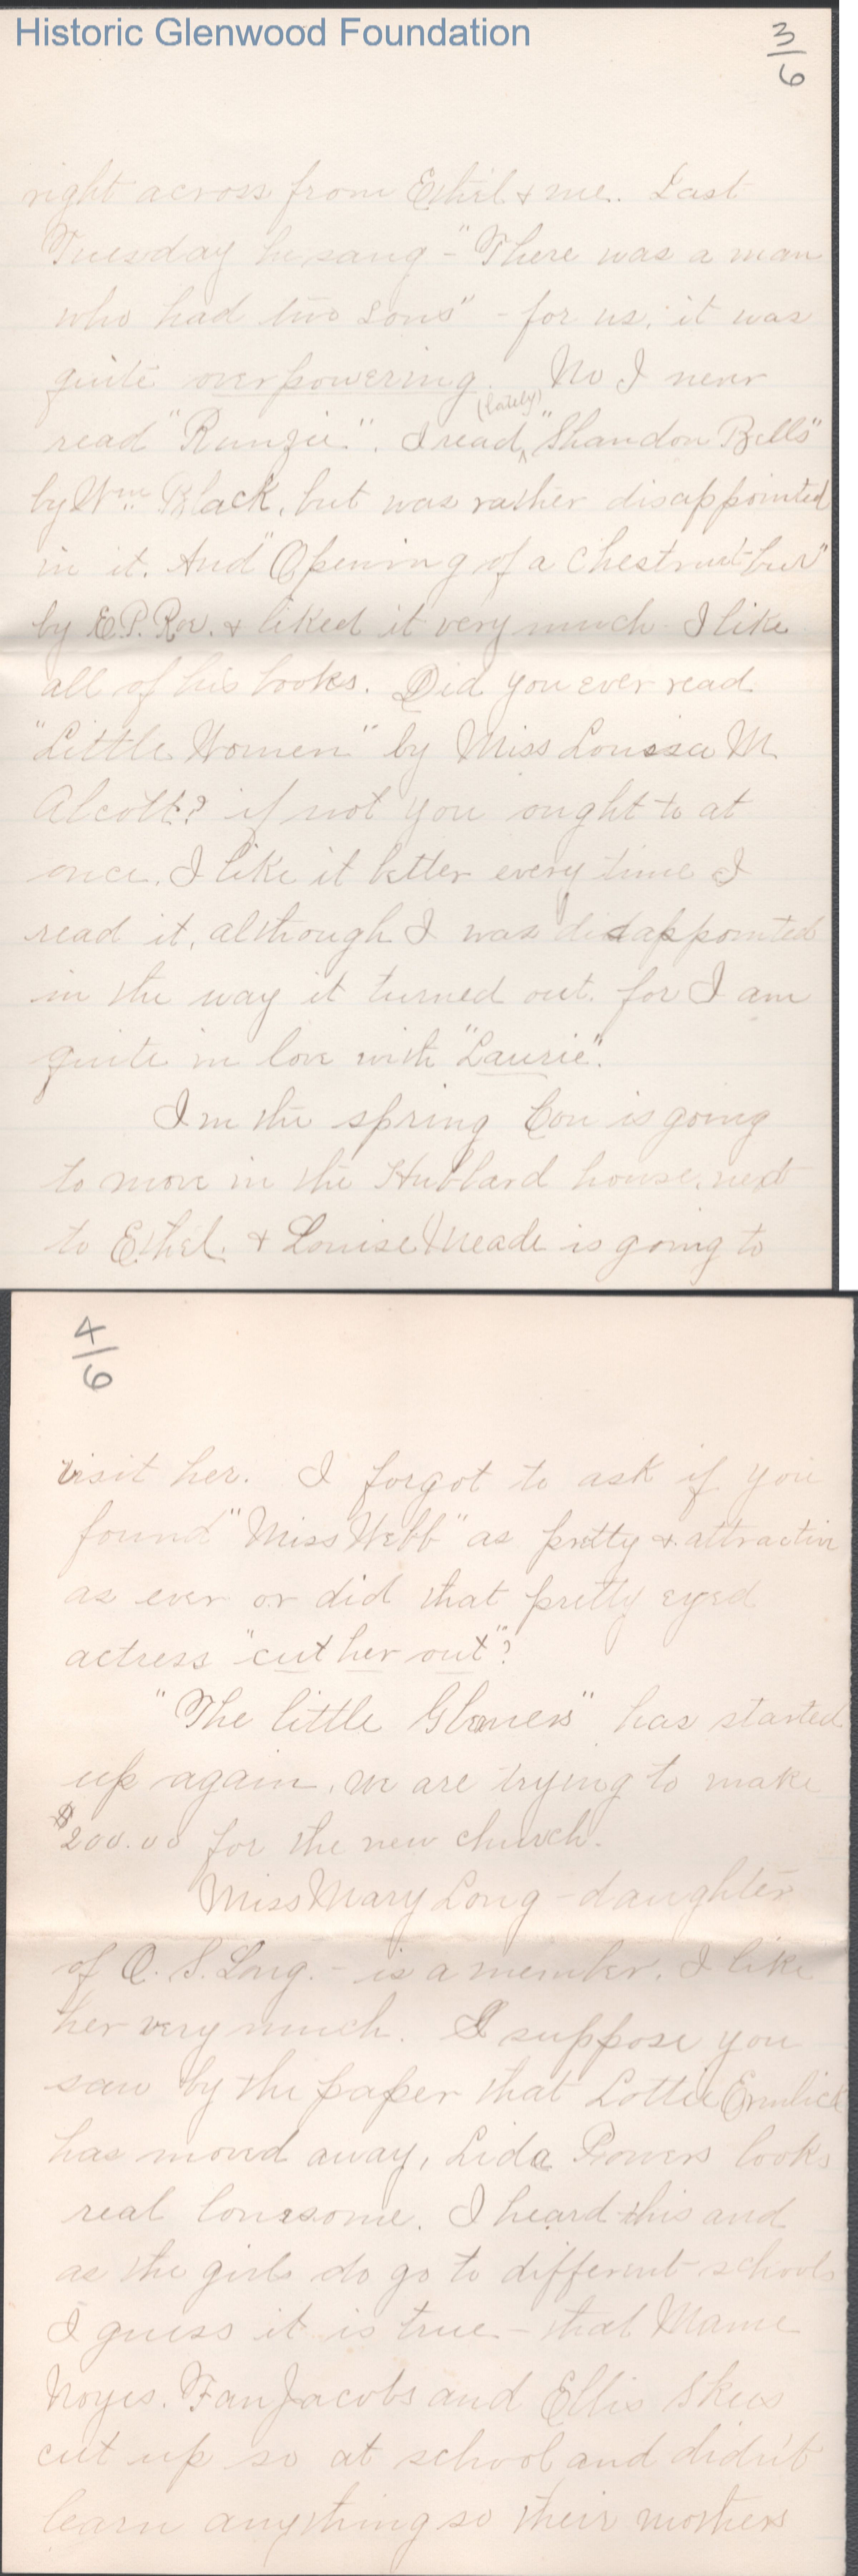 Historic Glenwood Foundation
3/6
right across from Ethel & me. Last
Tuesday he sang - "There was a man
who had two sons" - for us, it was
quite overpowering. No I never
(lately)
read "Runzie". I read ^ "Shandon Bells"
by Wm. Black, but was rather disappointed
in it. And "Opening of a Chestnut-bur"
by E.P. Roe. & liked it very much. I like
all of his books. Did you ever read
"Little Women" by Miss Louisa M.
Alcott? if not you ought to at
once. I like it better every time I
read it, although I was disappointed
in the way it turned out. for I am
quite in love with "Laurie".
In the spring Con is going
to move in the Hubbard house, next
to Ethel. & Louise Meade is going to
4/6
visit her. I forgot to ask if you
found "Miss Webb" as pretty & attractive
as ever or did that pretty eyed
actress "cut her out"?
"The little Gleaners" has started
up again, we are trying to make
$200.00 for the new church.
Miss Mary Long - daughter
of C. S. Long. - is a member. I like
her very much. I suppose you
saw by the paper that Lottie
has moved away, Lida Powers looks
real lonesome. I heard this and
as the girls do go to different schools
I guess it is true - that Mame
Noyes. Fan Jacobs and Ellis Skees
cut up so at school and didn't
learn anything so their mothers